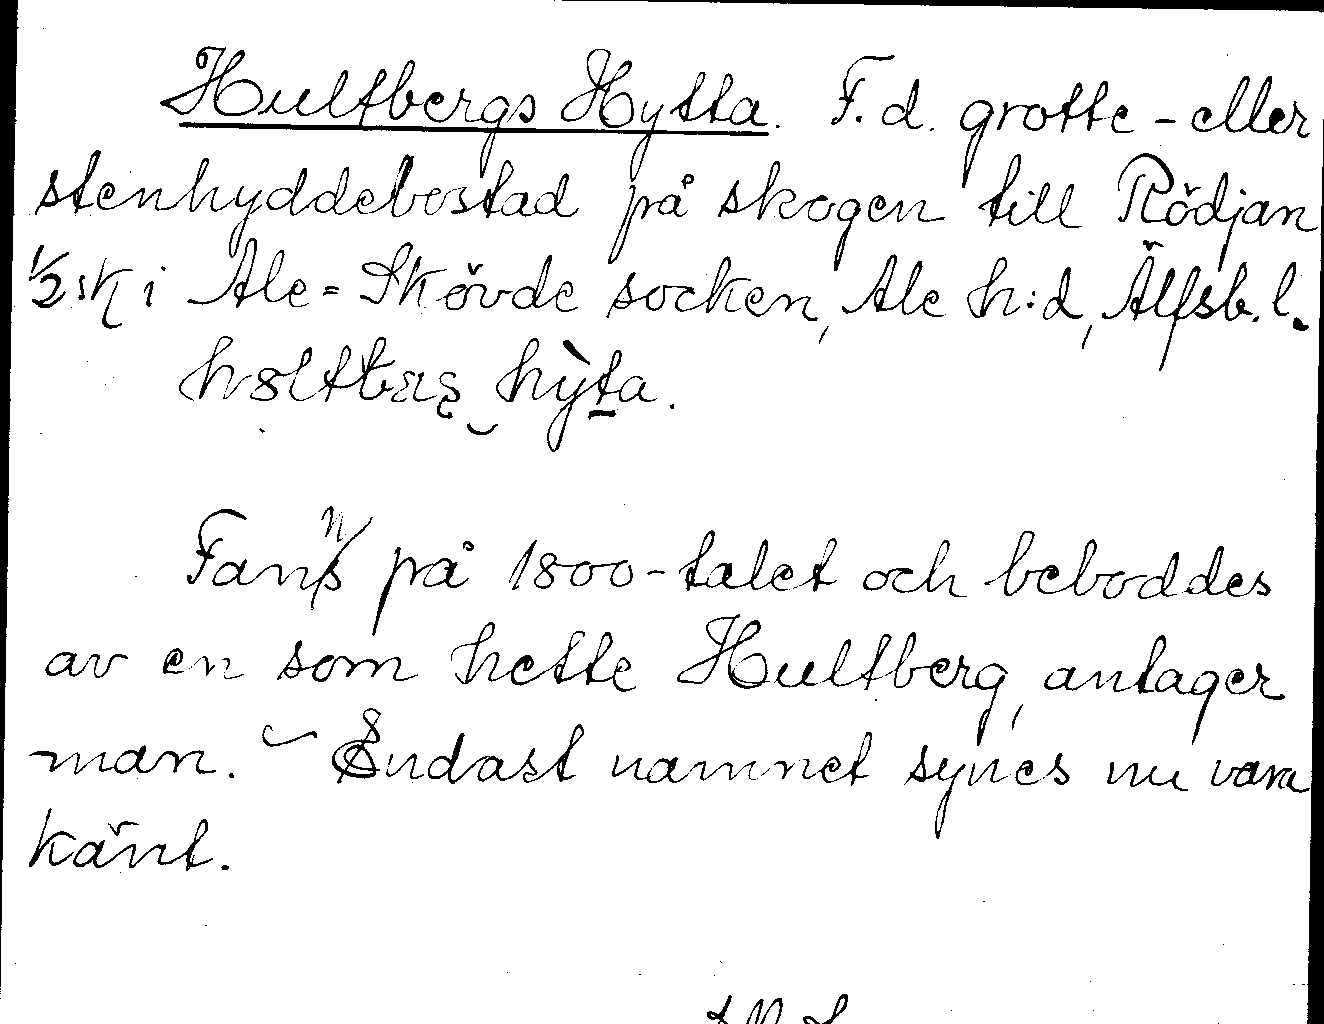 Hultbergs Hytta. F.d. grotte- eller
stenhyddebostad på skogen till Rödjan
1/2 sk i Ale=Skövde socken, Ale h:d, Älfsb. l.
hy̆ta.
Fanns på 1800-talet och beboddes
av en som hette Hultberg, antager
man. Endast namnet synes nu vara
känt.